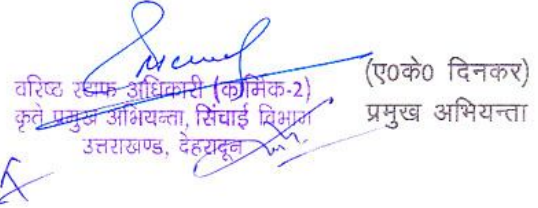 वरिष्ठ स्टाफ अधिकारी (कार्मिक-2)
कृते प्रमुख अभियन्ता, सिंचाई विभाग
उत्तराखण्ड, देहरादून
(ए०के० दिनकर)
प्रमुख अभियन्ता